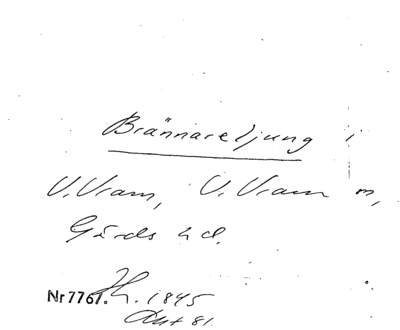 Brännareljung
V. Vram, V. Vram
Gärds hd.
Nr 7761. 1845
Akt 81.